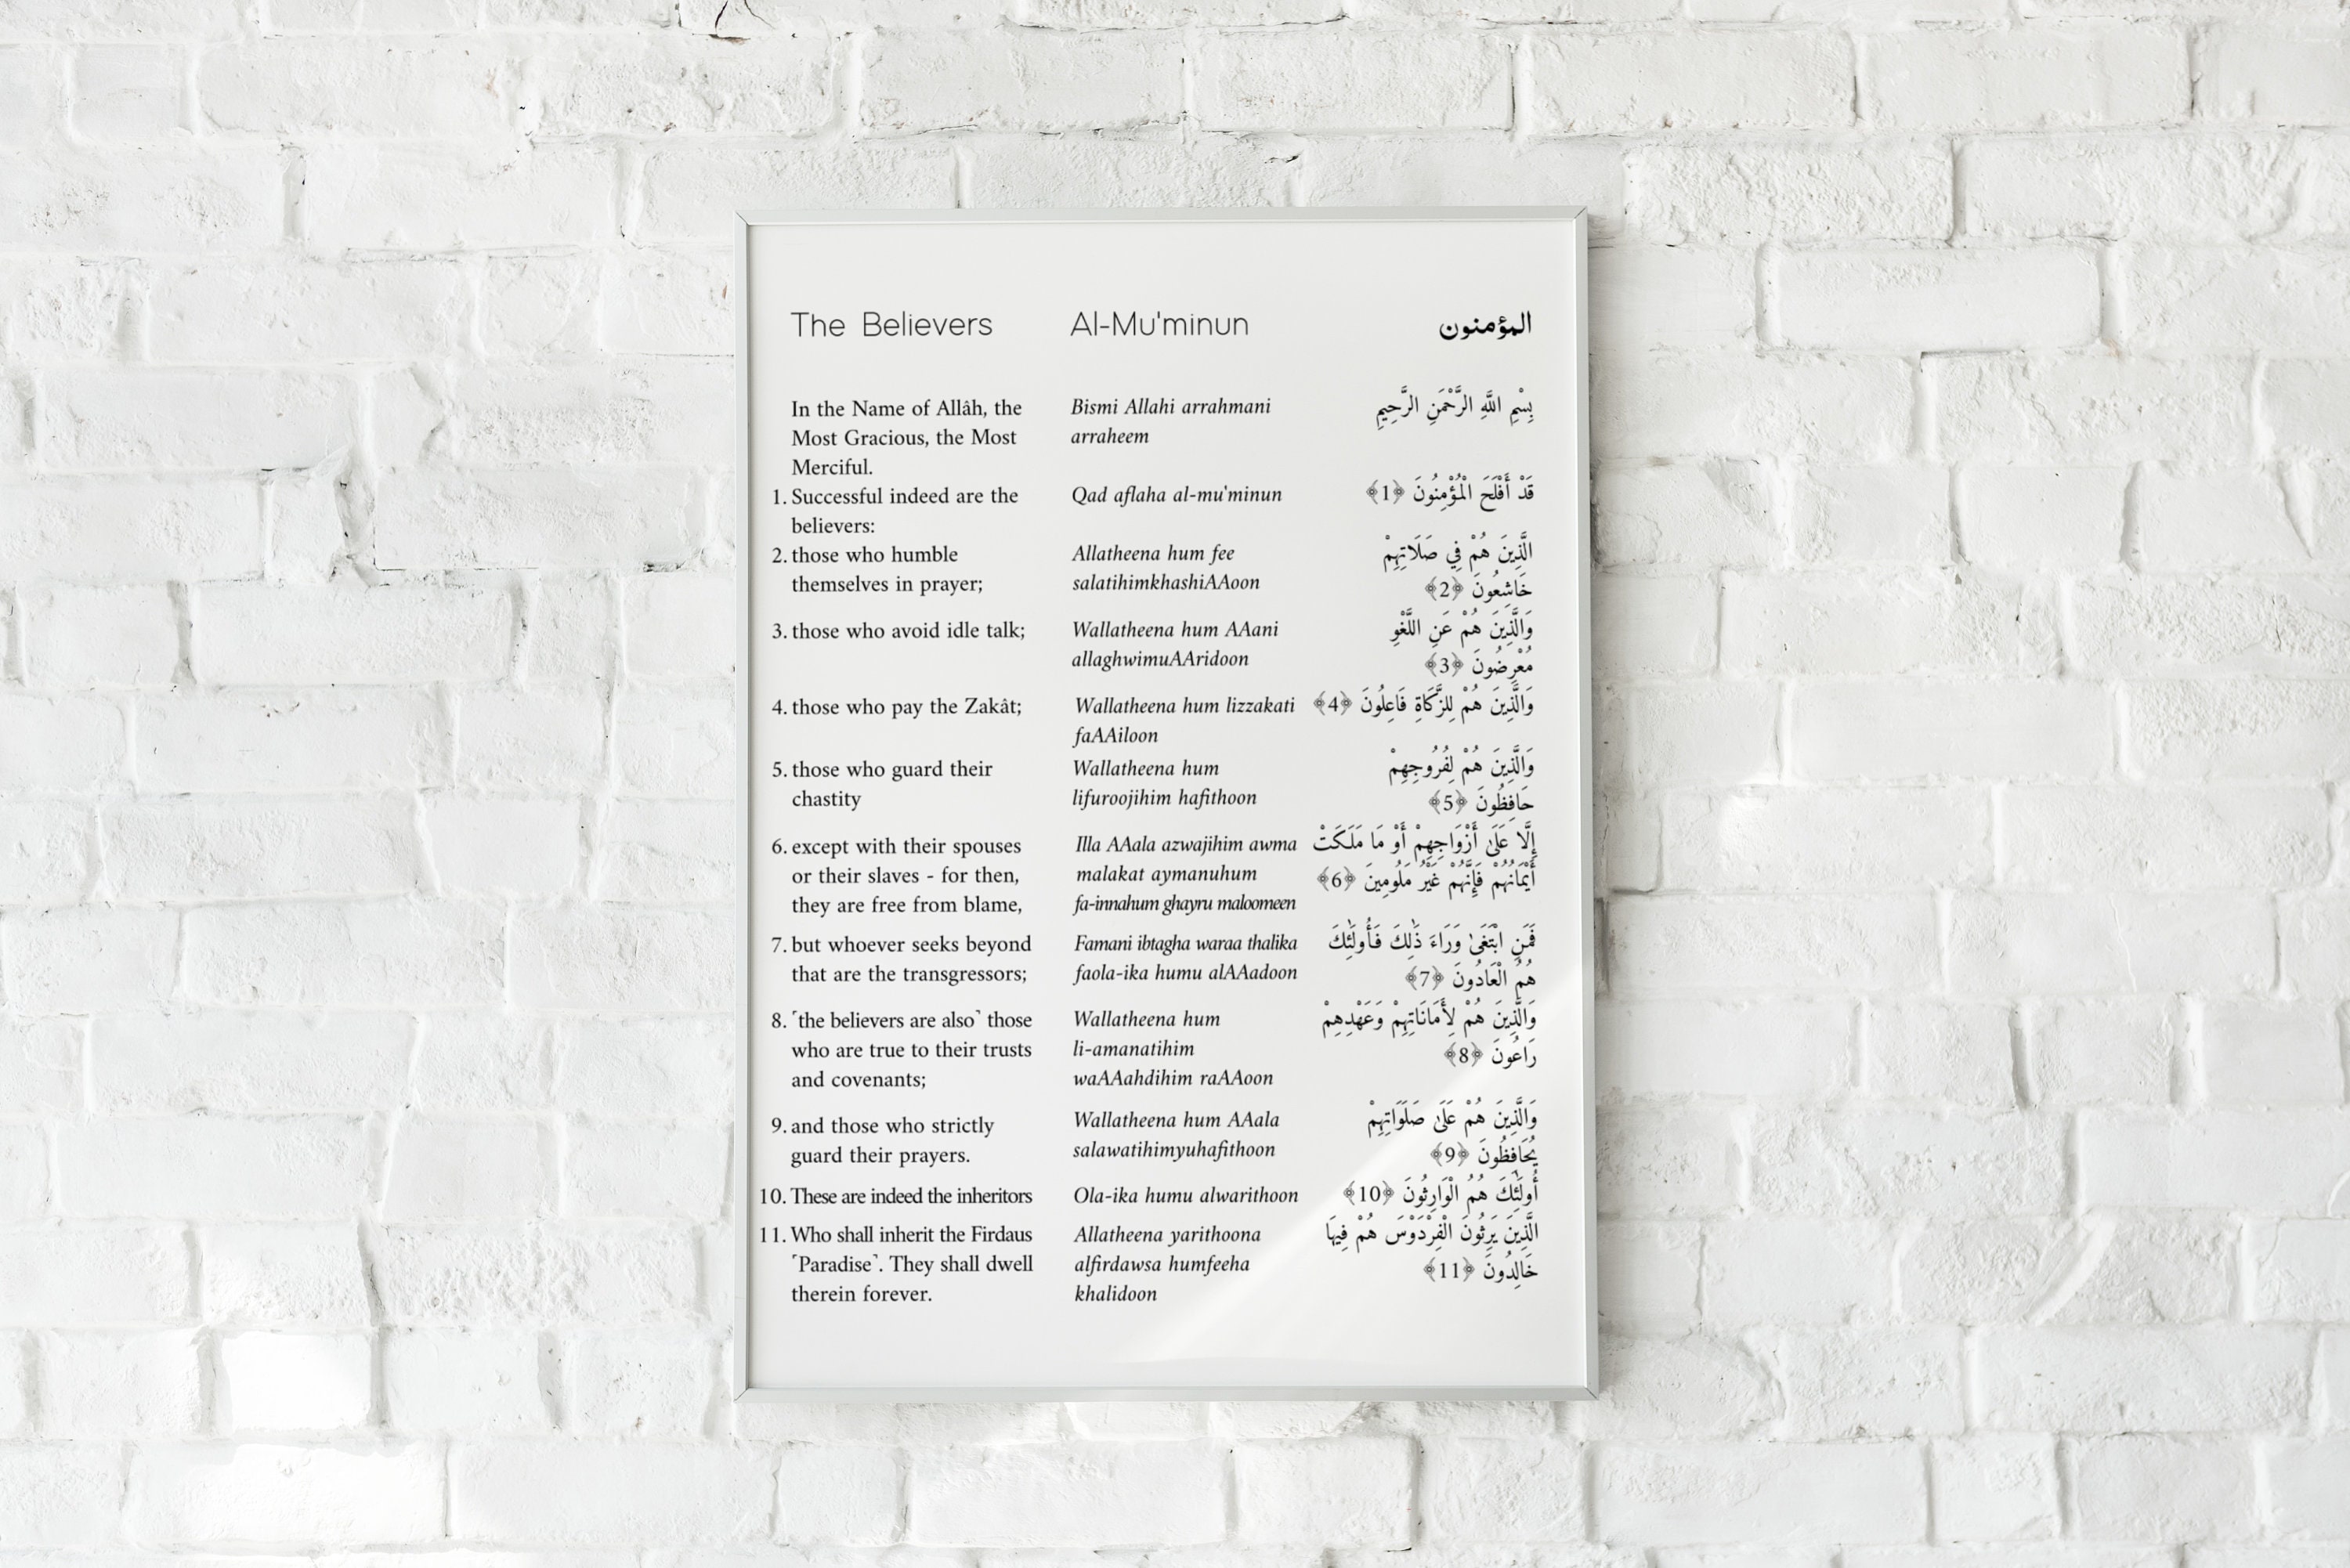 The Believers
Al-Mu'minun
المؤمنون
In the Name of Allâh, the
Most Gracious, the Most
Merciful.
1. Successful indeed are the
believers:
2. those who humble
themselves in prayer;
3. those who avoid idle talk;
4. those who pay the Zakât;
5. those who guard their
chastity
6. except with their spouses
or their slaves - for then,
they are free from blame,
7. but whoever seeks beyond
that are the transgressors;
8. ˹the believers are also˺ those
who are true to their trusts
and covenants;
9. and those who strictly
guard their prayers.
10. These are indeed the inheritors
11. Who shall inherit the Firdaus
˹Paradise˺. They shall dwell
therein forever.
Bismi Allahi arrahmani
arraheem
Qad aflaha al-mu'minun
Allatheena hum fee
salatihimkhashiAAoon
Wallatheena hum AAani
allaghwimuAAridoon
Wallatheena hum lizzakati
faAAiloon
Wallatheena hum
lifuroojihim hafithoon
Illa AAala azwajihim awma
malakat aymanuhum
fa-innahum ghayru maloomeen
Famani ibtagha waraa thalika
faola-ika humu alAAadoon
Wallatheena hum
li-amanatihim
waAAahdihim raAAoon
Wallatheena hum AAala
salawatihimyuhafithoon
Ola-ika humu alwarithoon
Allatheena yarithoona
alfirdawsa humfeeha
khalidoon
بِسْمِ اللَّهِ الرَّحْمَنِ الرَّحِيمِ
قَدْ أَفْلَحَ الْمُؤْمِنُونَ ﴿1﴾
الَّذِينَ هُمْ فِي صَلَاتِهِمْ
خَاشِعُونَ ﴿2﴾
وَالَّذِينَ هُمْ عَنِ اللَّغْوِ
مُعْرِضُونَ ﴿3﴾
وَالَّذِينَ هُمْ لِلزَّكَاةِ فَاعِلُونَ ﴿4﴾
وَالَّذِينَ هُمْ لِفُرُوجِهِمْ
حَافِظُونَ ﴿5﴾
إِلَّا عَلَىٰ أَزْوَاجِهِمْ أَوْ مَا مَلَكَتْ
أَيْمَانُهُمْ فَإِنَّهُمْ غَيْرُ مَلُومِينَ ﴿6﴾
فَمَنِ ابْتَغَىٰ وَرَاءَ ذَٰلِكَ فَأُولَٰئِكَ
هُمُ الْعَادُونَ ﴿7﴾
وَالَّذِينَ هُمْ لِأَمَانَاتِهِمْ وَعَهْدِهِمْ
رَاعُونَ ﴿8﴾
وَالَّذِينَ هُمْ عَلَىٰ صَلَوَاتِهِمْ
يُحَافِظُونَ ﴿9﴾
أُولَٰئِكَ هُمُ الْوَارِثُونَ ﴿10﴾
الَّذِينَ يَرِثُونَ الْفِرْدَوْسَ هُمْ فِيهَا
خَالِدُونَ ﴿11﴾